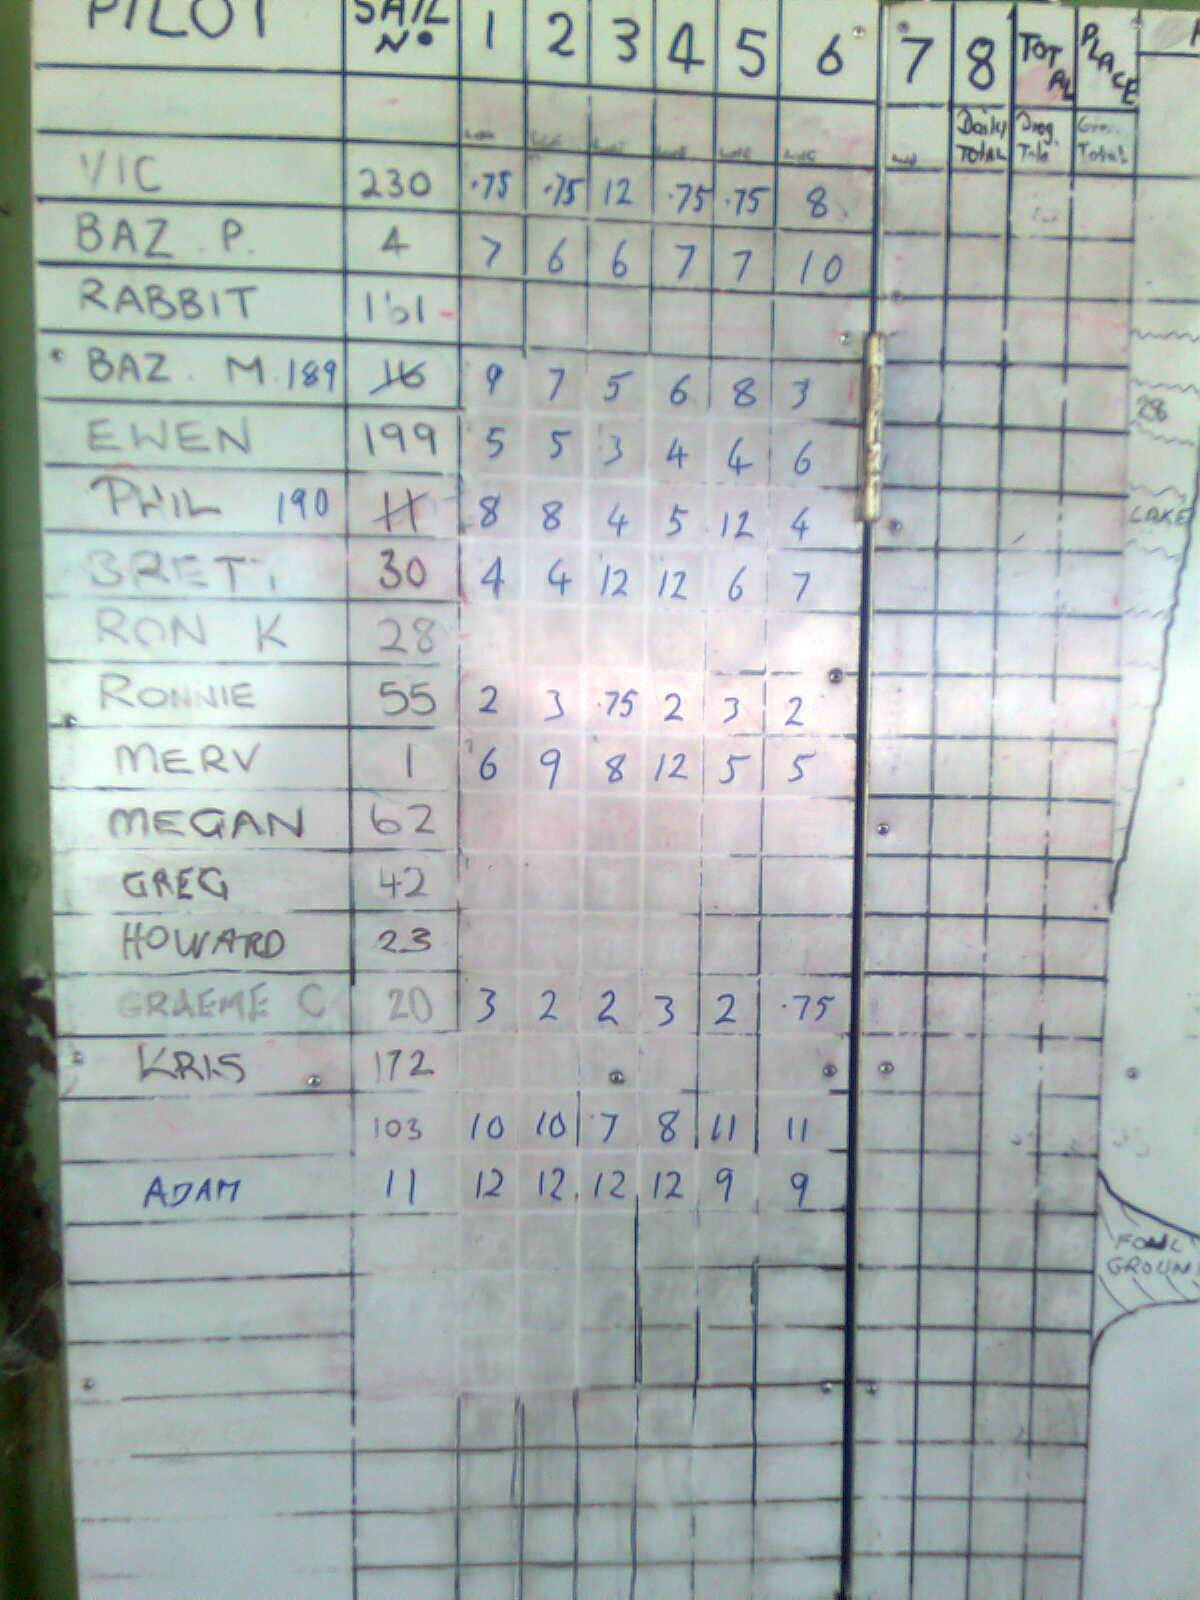 PILOT SAIL No 1 2 3 4 5 6 7 8 TOTAL PLACE
Daily TOTAL Prog. Total
VIC 230 .75 .75 12 .75 .75 8
BAZ P. 4 7 6 6 7 7 10
RABBIT 161
BAZ. M. 189 16 9 7 5 6 8 3
28
EWEN 199 5 5 3 4 4 6
PHIL 190 11 8 8 4 5 12 4
LAKE
BRETT 30 4 4 12 12 6 7
RON K 28
RONNIE 55 2 3 .75 2 3 2
MERV 1 6 9 8 12 5 5
MEGAN 62
GREG 42
HOWARD 23
GRAEME C 20 3 2 2 3 2 .75
KRIS 172
103 10 10 7 8 11 11
ADAM 11 12 12 12 12 9 9
FOUL
GROUND